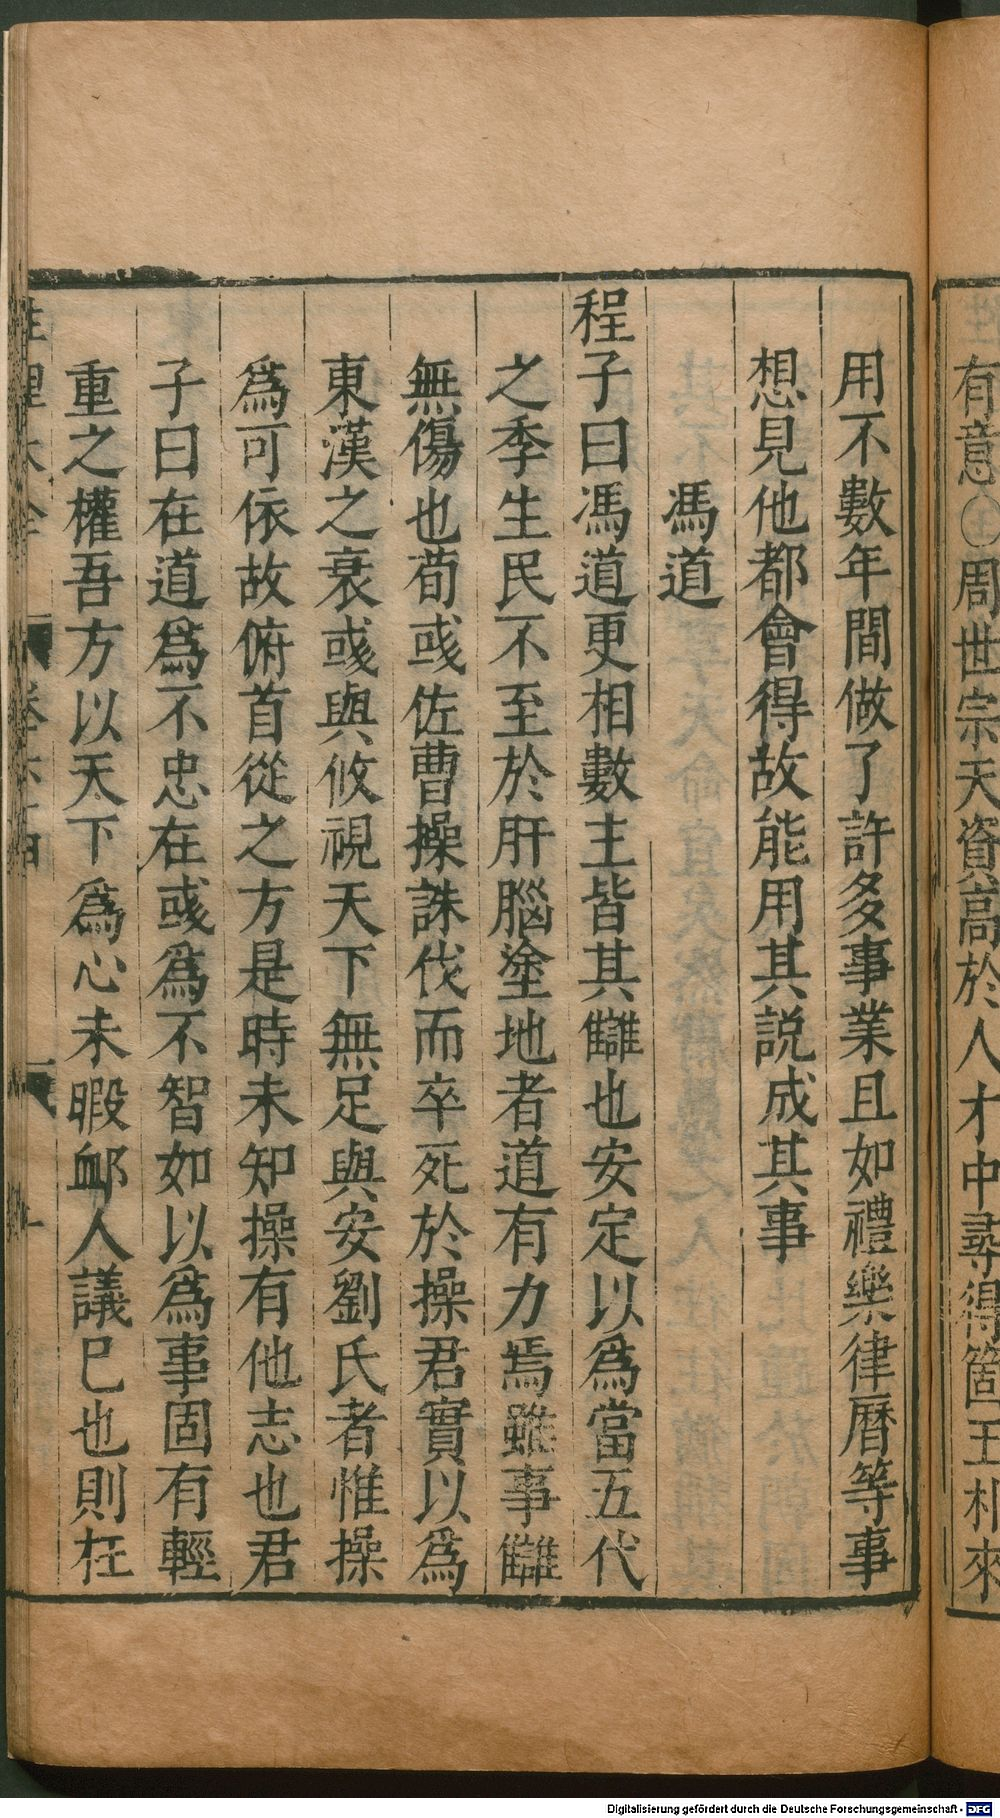 有意○周世宗天資高於人才中尋得箇王朴來
用不數年間做了許多事業且如禮樂律曆等事
想見他都會得故能用其説成其事
馮道
程子曰馮道更相數主皆其讎也安定以爲當五代
之季生民不至於肝腦塗地者道有力焉雖事讎
無傷也荀彧佐曹操誅伐而卒死於操君實以爲
東漢之衰彧與攸視天下無足與安劉氏者惟操
爲可依故俯首從之方是時未知操有他志也君
子曰在道爲不忠在彧爲不智如以爲事固有輕
重之權吾方以天下爲心未暇䘏人議已也則枉
性理大全 卷六十四
Digitalisierung gefördert durch die Deutsche Forschungsgemeinschaft - DFG